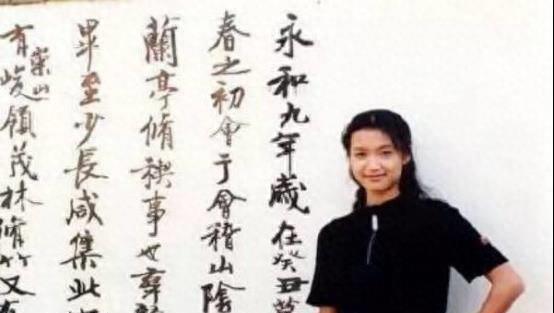 永和九年歲在癸丑
春之初會于會稽山陰
蘭亭脩禊事也羣
畢至少長咸集此
有崇山峻領茂林脩竹又